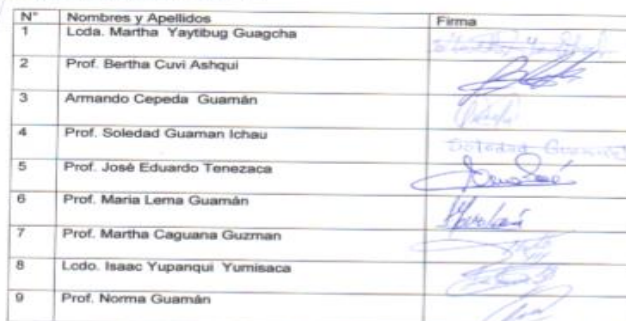 N° Nombres y Apellidos Firma
1 Lcda. Martha Yaytibug Guagcha
2 Prof. Bertha Cuvi Ashqui
3 Armando Cepeda Guamán
4 Prof. Soledad Guaman Ichau Soledad Guaman
5 Prof. José Eduardo Tenezaca
6 Prof. Maria Lema Guamán
7 Prof. Martha Caguana Guzman
8 Lcdo. Isaac Yupanqui Yumisaca
9 Prof. Norma Guamán